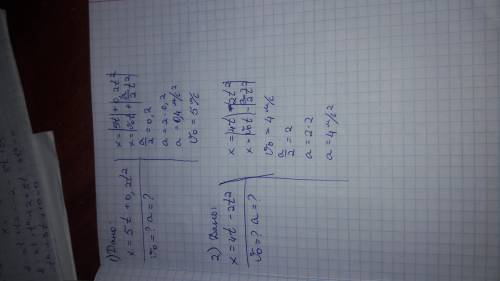 1) Дано:
x = 5t + 0,2t²
v₀ = ? a = ?
x = |5t| + |0,2t²|
x = |v₀t| + |a/2 t²|
a/2 = 0,2
a = 2·0,2
a = 0,4 м/с²
v₀ = 5 м/с
2) Дано:
x = 4t - 2t²
v₀ = ? a = ?
x = |4t| - |2t²|
x = |v₀t| - |a/2 t²|
v₀ = 4 м/с
a/2 = 2
a = 2·2
a = 4 м/с²